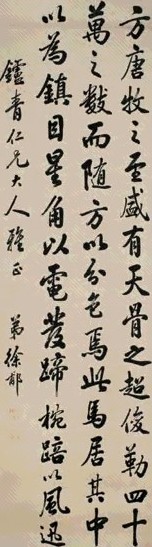 方唐牧之至盛有天骨之超俊勒四十
萬之數而隨方以分色焉此馬居其中
以為鎮目星角以電發蹄椀踣以風迅
鑪青仁兄大人雅正 弟徐郙